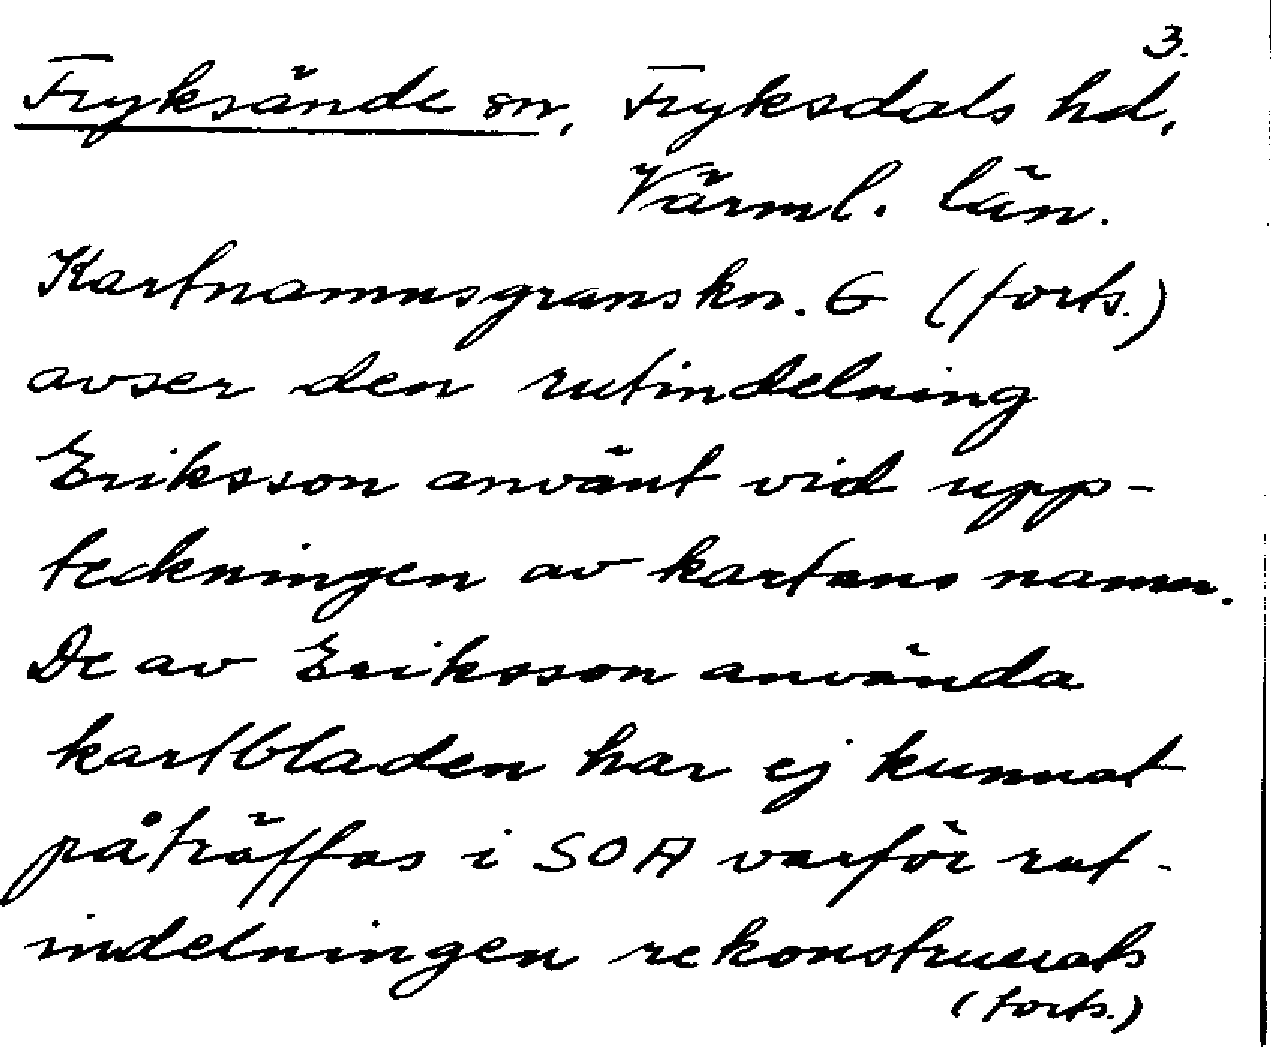 3.
Fryksände sn, Fryksdals hd,
Värml. län.
Kartnamnsgranskn. G (forts.)
avser den rutindelning
Eriksson använt vid upp-
teckningen av kartans namn.
De av Eriksson använda
kartbladen har ej kunnat
påträffas i SOA varför rut-
indelningen rekonstruerats
(forts.)